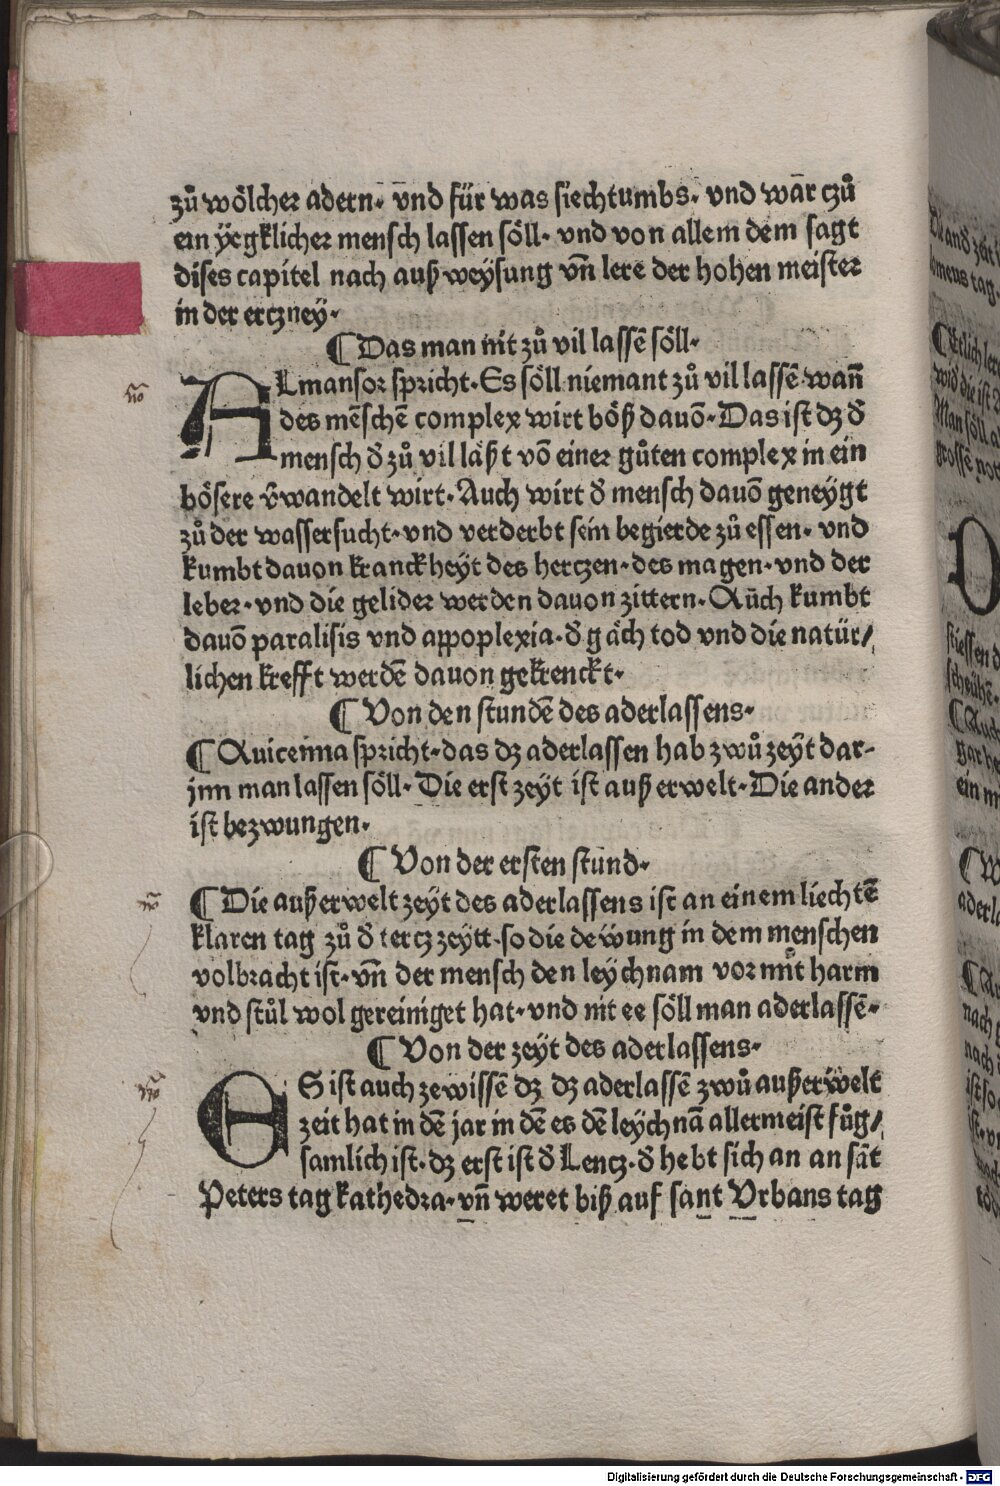 zů wölcher adern· vnd für was siechtumbs· vnd war̄ czů
ein ÿegklicher mensch lassen söll· vnd von allem dem sagt
dises capitel nach außweysung vn̄ lere der hohen meister
in der erczney·
¶ Das man nit zů vil lassē söll·
ALmansor spricht·Es söll niemant zů vil lassē·wan̄
des mēschē complex wirt böß dauō·Das ist dz đ
mensch đ zů vil läßt vō einer gůten complex in ein
bösere v̄wandelt wirt·Auch wirt đ mensch dauō geneÿgt
zů der wassersucht·vnd verderbt sein begierde zů essen· vnd
kumbt dauon kranckheÿt des herczen·des magen·vnd der
leber·vnd die gelider werden dauon zittern·Aūch kumbt
dauō paralisis vnd appoplexia·đ gäch tod vnd die natür/
lichen krefft werdē dauon gekrenckt·
¶ Von den stundē des aderlassens·
¶ Auicenna spricht·das dz aderlassen hab zwů zeÿt dar-
jnn man lassen söll· Die erst zeÿt ist außerwelt·Die ander
ist bezwungen·
¶ Von der ersten stund·
¶ Die außerwelt zeÿt des aderlassens ist an einem liechtē
klaren tag zů đ tercz zeÿtt·so die dewung in dem menschen
volbracht ist·vn̄ der mensch den leÿchnam vor mit harm
vnd stůl wol gereiniget hat·vnd nit ee söll man aderlassē·
¶ Von der zeÿt des aderlassens·
ES ist auch zewissē dz dz aderlassē zwů außerwelt
zeit hat in dē jar in dē es dē leÿchnā allermeist fůg/
samlich ist·dz erst ist đ Lencz·đ hebt sich an an sāt
Peters tag kathedra·vn̄ weret biß auf sant Vrbans tag
Digitalisierung gefördert durch die Deutsche Forschungsgemeinschaft - DFG